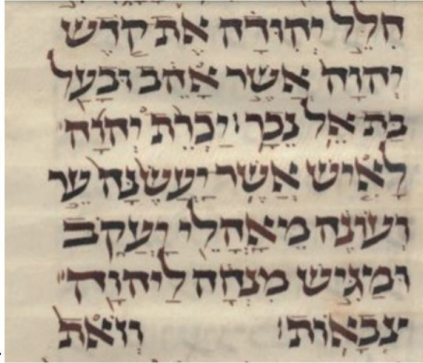 חִלֵּל יְהוּדָה אֶת קֹדֶשׁ
יְהוָה אֲשֶׁר אָהֵב וּבָעַל
בַּת אֵל נֵכָר׃ יַכְרֵת יְהוָה
לָאִישׁ אֲשֶׁר יַעֲשֶׂנָּה עֵר
וְעוֹנֶה מֵאָהֳלֵי יַעֲקֹב
וּמַגִּישׁ מִנְחָה לַיהוָה
צְבָאוֹת׃ וְזֹאת